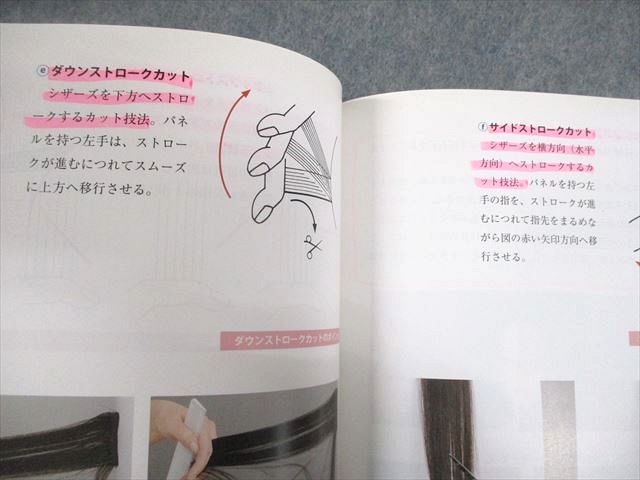 ⓔ ダウンストロークカット
シザーズを下方へストロ
ークするカット技法。パネ
ルを持つ左手は、ストロー
クが進むにつれてスムーズ
に上方へ移行させる。
ダウンストロークカットのポイン
ⓕ サイドストロークカット
シザーズを横方向（水平
方向）へストロークするカ
ット技法。パネルを持つ左
手の指を、ストロークが進
むにつれて指先をまるめな
がら図の赤い矢印方向へ移
行させる。